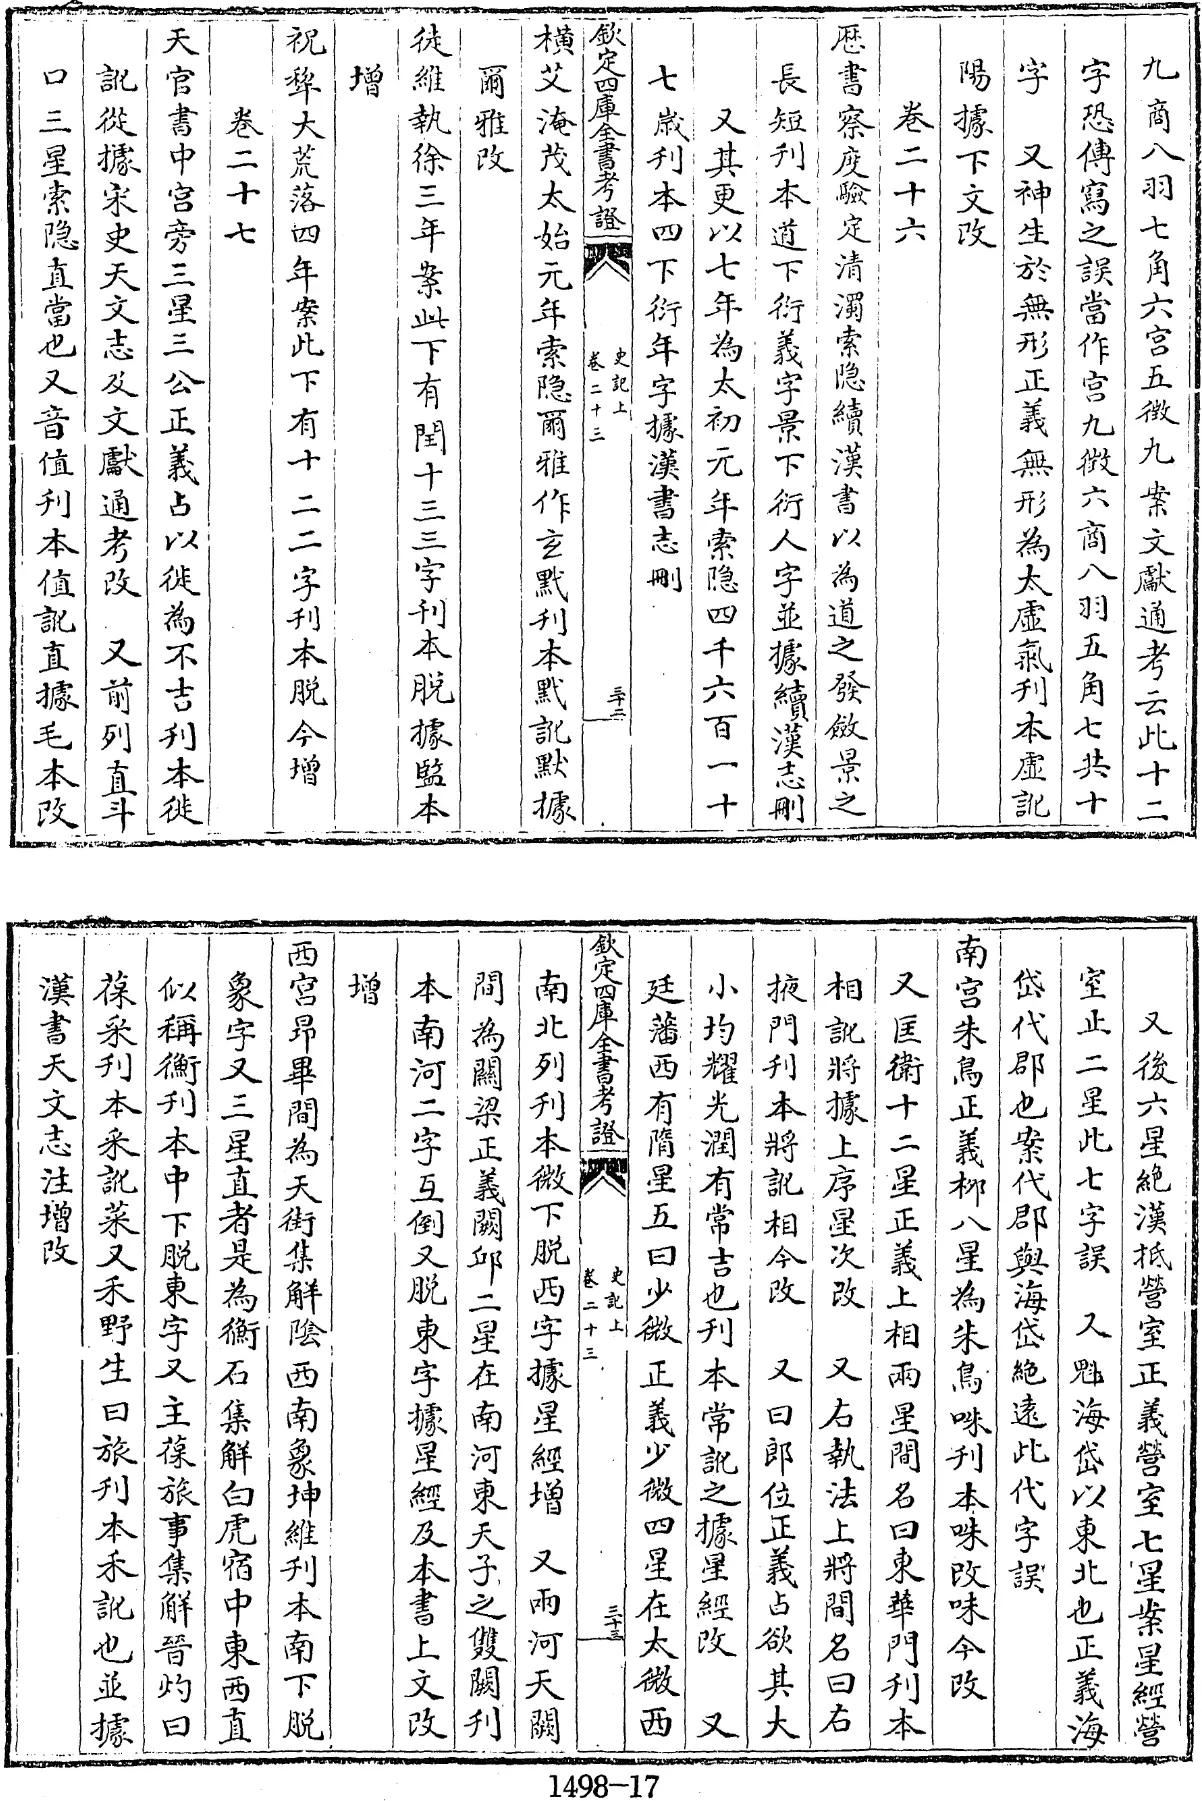 九商八羽七角六宫五徴九案文獻通考云此十二
字恐傳寫之誤當作宫九徴六商八羽五角七共十
字　又神生於無形正義無形為太虚氣刋本虚訛
陽據下文改
卷二十六
厯書察度驗定清濁索隐續漢書以為道之發斂景之
長短刋本道下衍義字景下衍人字並據續漢志刪
又其更以七年為太初元年索隐四千六百一十
七嵗刋本四下衍年字據漢書志刪
欽定四庫全書考證
史記上
卷二十三
三十二
横艾淹茂太始元年索隐爾雅作玄黓刋本黓訛默據
爾雅改
徒維執徐三年案此下有閏十三三字刋本脱據監本
增
祝犂大荒落四年案此下有十二二字刋本脱今增
卷二十七
天官書中宫旁三星三公正義占以徙為不吉刋本徙
訛從據宋史天文志及文獻通考改　又前列直斗
口三星索隐直當也又音值刋本值訛直據毛本改
又後六星絶漢抵營室正義營室七星案星經營
室止二星此七字誤　又魁海岱以東北也正義海
岱代郡也案代郡與海岱絶遠此代字誤
南宫朱鳥正義栁八星為朱鳥咮刋本咮改味今改
又匡衛十二星正義上相兩星間名曰東華門刋本
相訛將據上序星次改　又右執法上將間名曰右
掖門刋本將訛相今改　又曰郎位正義占欲其大
小均耀光潤有常吉也刋本常訛之據星經改　又
廷藩西有隋星五曰少微正義少微四星在太微西
欽定四庫全書考證
史記上
卷二十三
三十三
南北列刋本微下脱西字據星經增　又兩河天闕
間為關梁正義闕邱二星在南河東天子之雙闕刋
本南河二字互倒又脱東字據星經及本書上文改
增
西宫昴畢間為天街集解隂西南象坤維刋本南下脱
象字又三星直者是為衡石集解白虎宿中東西直
似稱衡刋本中下脱東字又主葆旅事集解晉灼曰
葆采刋本采訛菜又禾野生曰旅刋本禾訛也並據
漢書天文志注增改
1498-17